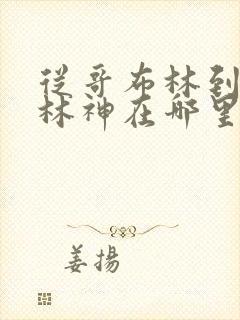 從哥布林到
林神在哪里
姜揚